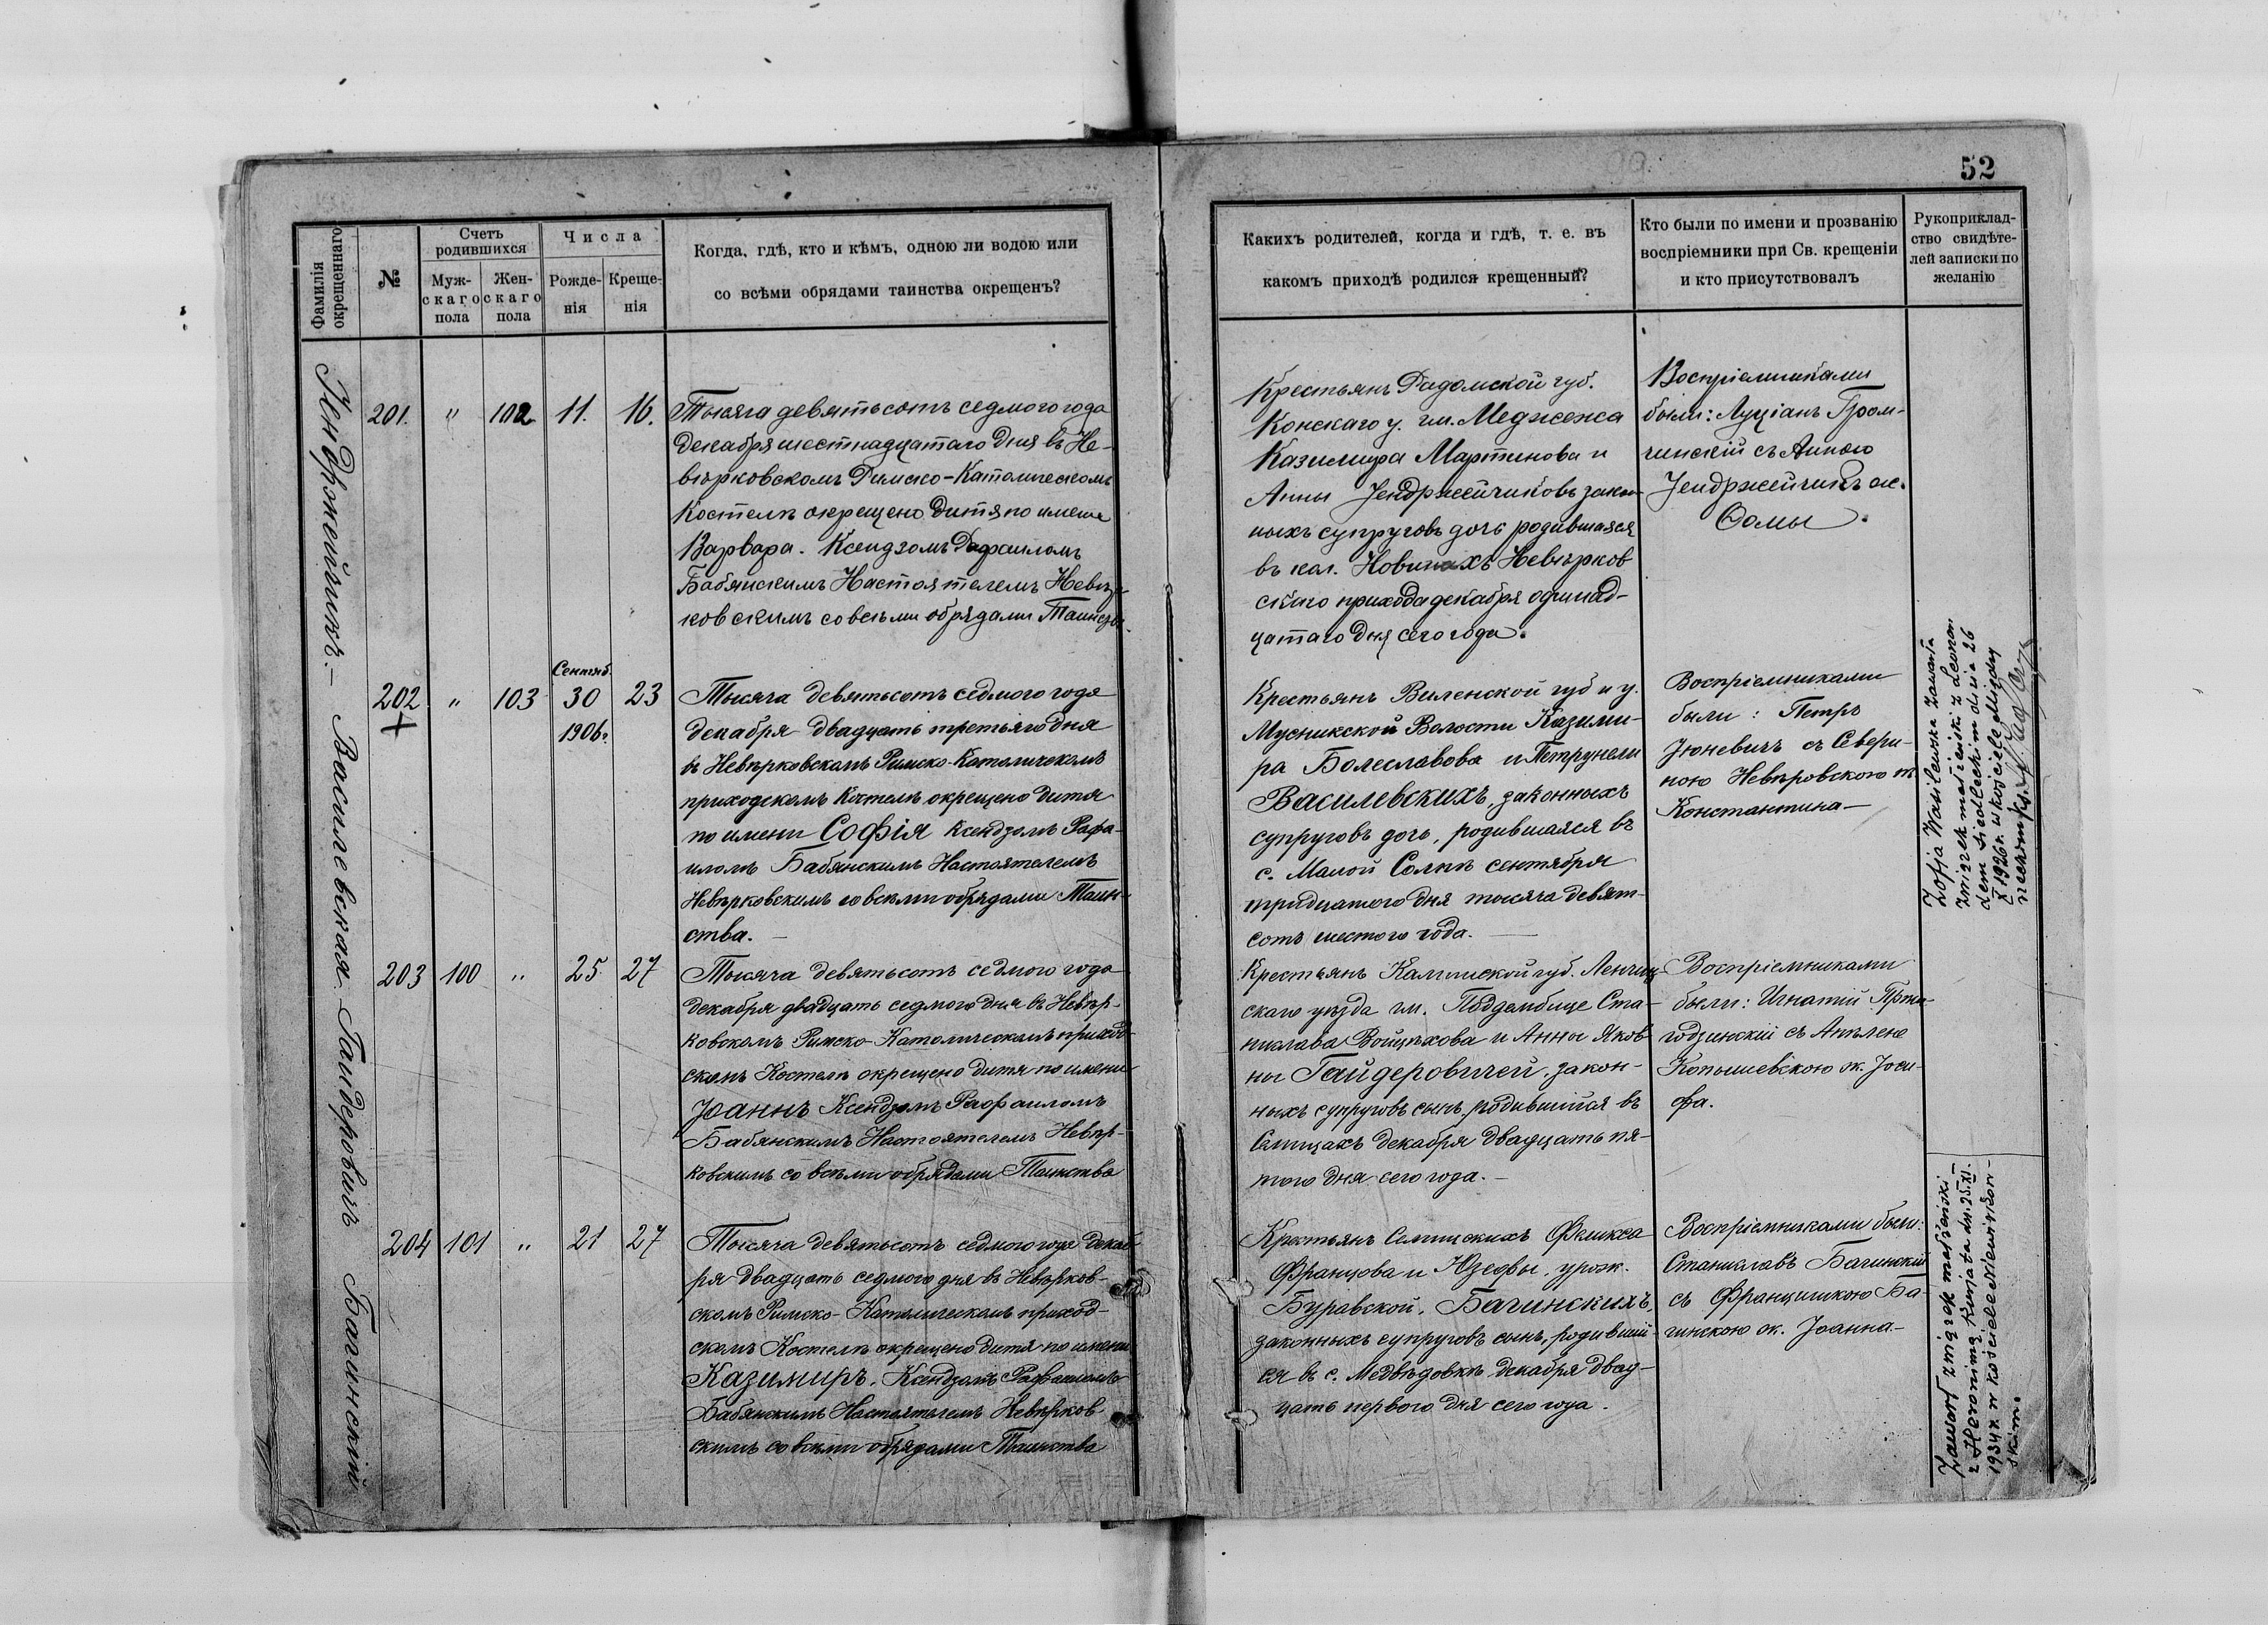 52
Фамилія
окрещеннаго
№
Счетъ
родившихся
Муж-
скаго
пола
Жен-
скаго
пола
Числа
Рожде-
нія
Креще-
нія
Когда, гдѣ, кто и кѣмъ, одною ли водою или
со всѣми обрядами таинства окрещенъ?
Какихъ родителей, когда и гдѣ, т. е. въ
какомъ приходѣ родился крещенный?
Кто были по имени и прозванію
воспріемники при Св. крещеніи
и кто присутствовалъ
Рукоприклад-
ство свидѣте-
лей записки по
желанію
Јендржейчикъ. —
201. " 102 11. 16.
Тысяча девятьсотъ седмого года
декабря шестнадцатаго дня въ Не-
вѣрковскомъ Римско-Католическомъ
Костелѣ окрещено дитя по имени
Варвара. Ксендзомъ Рафаиломъ
Бабянскимъ Настоятелемъ Невѣр-
ковскимъ со всѣми обрядами Таинства.
Крестьянъ Радомской губ.
Конскаго у. гм. Меджежа
Казимира Мартинова и
Анны Јендржейчиковъ закон-
ныхъ супруговъ дочь родившаяся
въ кол. Новинахъ Невѣрков
скаго прихода декабря одинад-
цатаго дня сего года.
Воспріемниками
были: Луціанъ Гром-
чинскій съ Анною
Јендржейчикъ ж.
Ѳомы.
Василевская
202 " 103
Сентяб.
30
1906 г.
23
Тысяча девятьсотъ седмого года
декабря двадцать третьяго дня
въ Невѣрковскомъ Римско-Католическомъ
приходскомъ Костелѣ окрещено дитя
по имени Софія Ксендзомъ Рафа-
иломъ Бабянскимъ Настоятелемъ
Невѣрковскимъ со всѣми обрядами Таин-
ства. —
Крестьянъ Виленской губ и у.
Мусникской Волости Казими-
ра Болеславова и Петрунели
Василевскихъ, законныхъ
супруговъ дочь, родившаяся въ
с. Малой Солкѣ сентября
тридцатого дня тысяча девят-
сотъ шестого года. —
Воспріемниками
были: Петръ
Јюневичъ съ Севери-
ною Невѣровскою ж.
Константина —
Zofja Wasilewska zawarła
związek małżeński z Leonar-
dem Siedleckim dnia 26
1926 r. w kościele
Гайдеровичъ
203 100 " 25 27
Тысяча девятьсотъ седмого года
декабря двадцать седмого дня въ Невѣр-
ковскомъ Римско-Католическомъ приход-
скомъ Костелѣ окрещено дитя по имени
Јоаннъ Ксендзомъ Рафаиломъ
Бабянскимъ Настоятелемъ Невѣр-
ковскимъ со всѣми обрядами Таинства
Крестьянъ Калишской губ. Ленчиц-
скаго уѣзда гм. Поддембице Ста-
нислава Войцѣхова и Анны Яков-
ны Гайдеровичей, закон-
ныхъ супруговъ сынъ, родившійся въ
декабря двадцать пя-
того дня сего года. —
Воспріемниками
были: Игнатій
съ
Копышевскою ж. Јоси-
фа.
Багинский
204 101 " 21 27
Тысяча девятьсотъ седмого года декаб-
ря двадцать седмого дня въ Невѣрков-
скомъ Римско-Католическомъ приход-
скомъ Костелѣ окрещено дитя по имени
Казимиръ. Ксендзомъ Рафаиломъ
Бабянскимъ Настоятелемъ Невѣрков
скимъ со всѣми обрядами Таинства
Крестьянъ Феликса
Францова и Юзефы, урож.
Буравской, Багинскихъ,
законныхъ супруговъ сынъ, родивший-
ся въ с. Медвѣдовкѣ декабря двад-
цать первого дня сего года.
Воспріемниками были:
Станиславъ Багинский
съ Францишкою Ба-
гинскою ж. Јоанна —
Zawarł związek małżeński
z Heronimą Kunjata dn. 25.XI.
1934 r. w kościele Niewirkow-
skim.